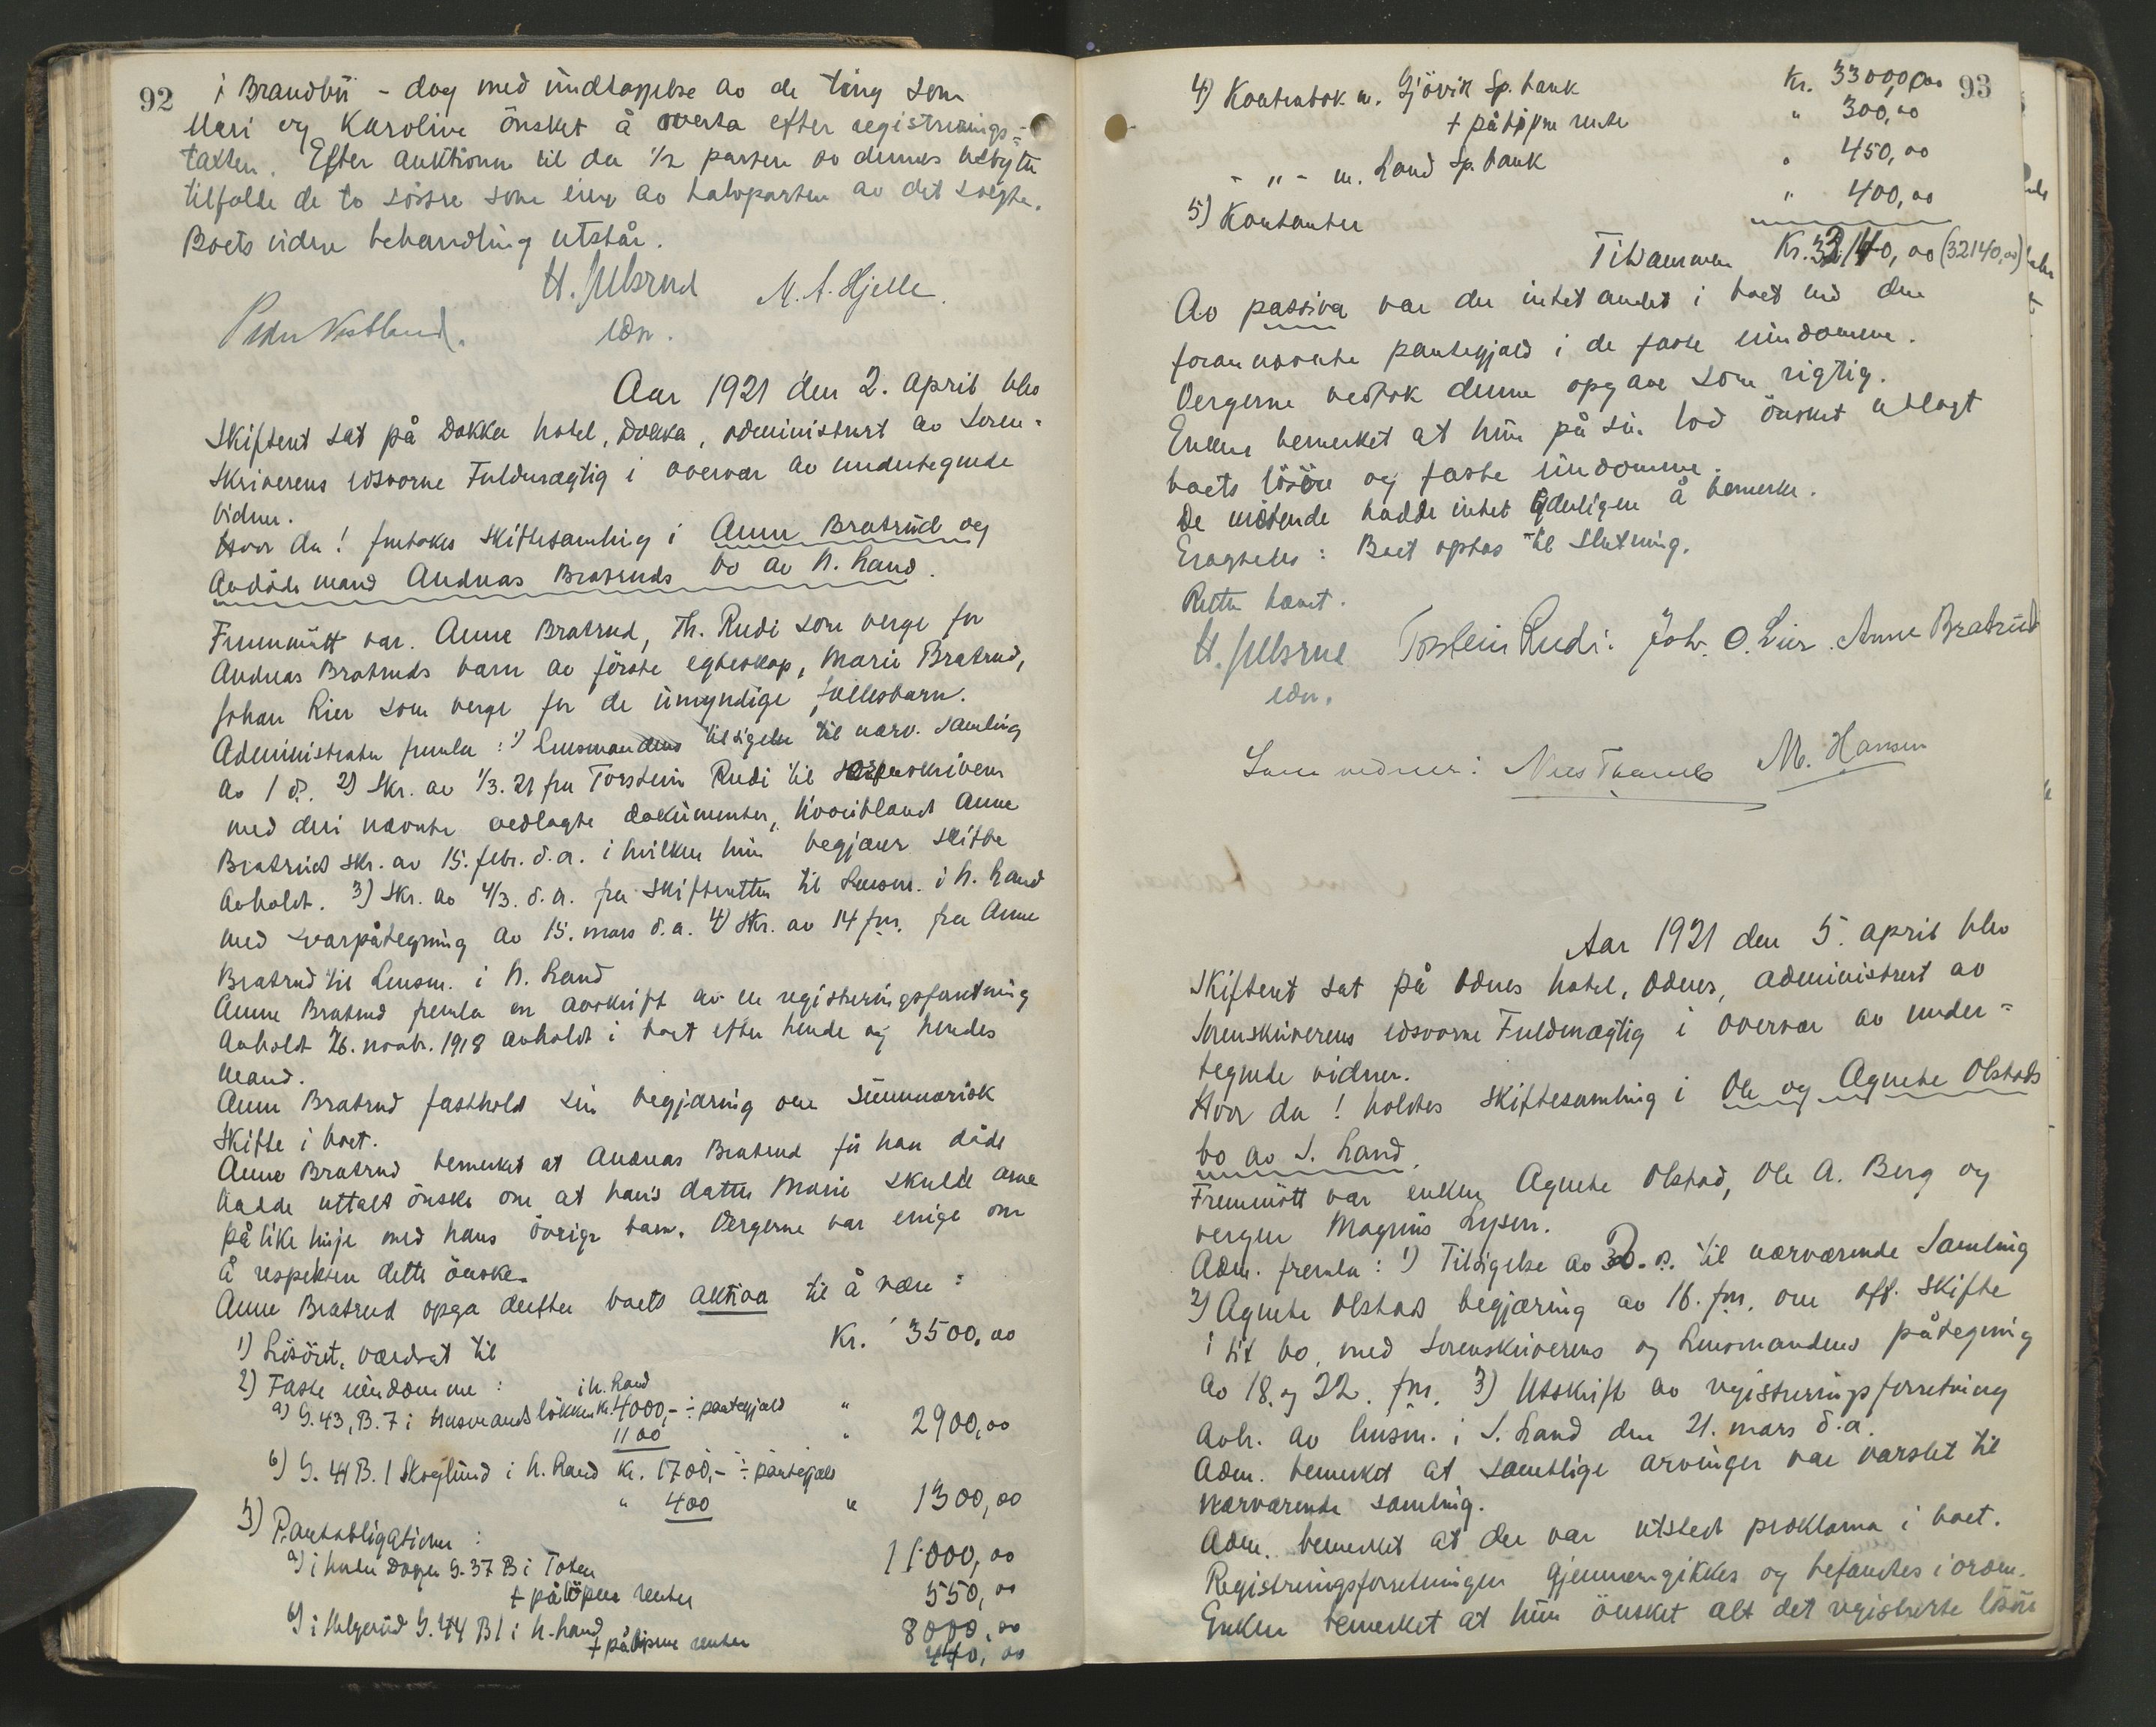 92
i Brandbu - dog med undtagelse av de ting som
Mari og Karoline önsket å overta efter registrerings-
taxten. Efter auktionen til da 1/2 parten av dennes utbytte
tilfalde de to søstre som eiere av halvparten av det solgte.
Boets videre behandling utstår.
H. Julsrud M. A. Hjelle.
Peder Vestlund. edsv.
Aar 1921 den 2. april blev
Skifteret sat på Dokka hotel, Dokka, administrert av Soren-
skriverens edsvorne Fuldmægtig i overvær av undertegnede
vidner.
Hvor da! foretokes skiftesamling i Anne Bratrud og
avdöde mand Andreas Bratruds bo av N. Land.
Fremmött var. Anne Bratrud, Th. Rudi som verge for
Andreas Bratruds barn av förste egteskap, Marie Bratrud,
Johan Lier som verge for de umyndige fællesbarn.
Administrator fremla: 1) Lensmandens tilsigelse til nærv. samling
av 1 d. 2) Skr. av 1/3. 21 fra Torstein Rudi til sorenskriveren
med deri nævnte vedlagte dokumenter, hvoriblandt Anne
Bratruds skr. av 15. febr. d.a. i hvilken hun begjærer skifte
avholdt. 3) Skr. av 4/3. d.a. fra skifteretten til Lensm. i N. Land
med svarpåtegning av 15. mars d.a. 4) Skr. av 14 fm. fra Anne
Bratrud til Lensm. i N. Land
Anne Bratrud fremla en avskrift av en registreringsforretning
avholdt 26. novbr. 1918 avholdt i boet efter hende og hendes
mand.
Anne Bratrud fastholdt sin begjæring om summarisk
skifte i boet.
Anne Bratrud bemerket at Andreas Bratrud för han döde
hadde uttalt önske om at hans datter Marie skulde arve
på like linje med hans övrige barn. Vergerne var enige om
å respektere dette önske.
Anne Bratrud opga derefter boets aktiva til å være:
1) Lösöret, værdsat til Kr. 3500,00
2) Faste eiendomme:
a) G. 43, B. 7 i Husmandslökken i N. Land kr. 4000,- ÷ pantegjæld "
1100 " 2900,00
b) G. 44 B. 1 Skoglund i N. Land kr. 1700,- ÷ pantegjæld
" 400 " 1300,00
3) Pantobligationer:
a) i G. 37 B i Toten 11000,00
+ påløpne renter 550,00
b) i Helgerud G. 44 B 1 i N. Land 8000,00
+ påløpne renter 440,00
93
4) Kontrabok m. Gjövik Sp. bank Kr. 33000,00
+ påløpne rente " 300,00
- " - m. Land Sp. bank " 450,00
5) Kontanter " 400,00
Tilsammen Kr. 32140,00 (32140,00)
Av passiva var der intet andet i boet end den
forannævnte pantegjæld i de faste eiendomme.
Vergerne vedtok denne opgave som rigtig.
Enken bemerket at hun på sin lod önsket utlagt
boets lösöre og faste eiendomme.
De mötende hadde intet yderligere å bemerke.
Eragtedes: Boet optas til slutning.
Retten hævet.
H. Julsrud Torstein Rudi. Joh. O. Lier. Anne Bratrud
edsv.
Som vidner: M. Hansen
Aar 1921 den 5. april blev
Skifteret sat på Odnes hotel, Odnes, administrert av
Sorenskriverens edsvorne Fuldmægtig i overvær av under-
tegnede vidner.
Hvor da! holdtes skiftesamling i Ole og Agnete Olstads
bo av S. Land.
Fremmött var enken Agnete Olstad, Ole A. Berg og
vergen Magnus Lysen.
Adm. fremla: 1) Tilsigelse av til nærværende samling
2) Agnete Olstads begjæring av 16. fm. om off. skifte
i sit bo, med Sorenskriverens og Lensmandens påtegning
av 18. og 22. fm. 3) Utskrift av registreringsforretning
avh. av lensm. i S. Land den 21. mars d.a.
Adm. bemerket at samtlige arvinger var varslet til
nærværende samling.
Adm. bemerket at der var utstedt proklama i boet.
Registreringsforretningen gjennemgikkes og befandtes i orden.
Enken bemerket at hun önsket alt det registrerte lösöre